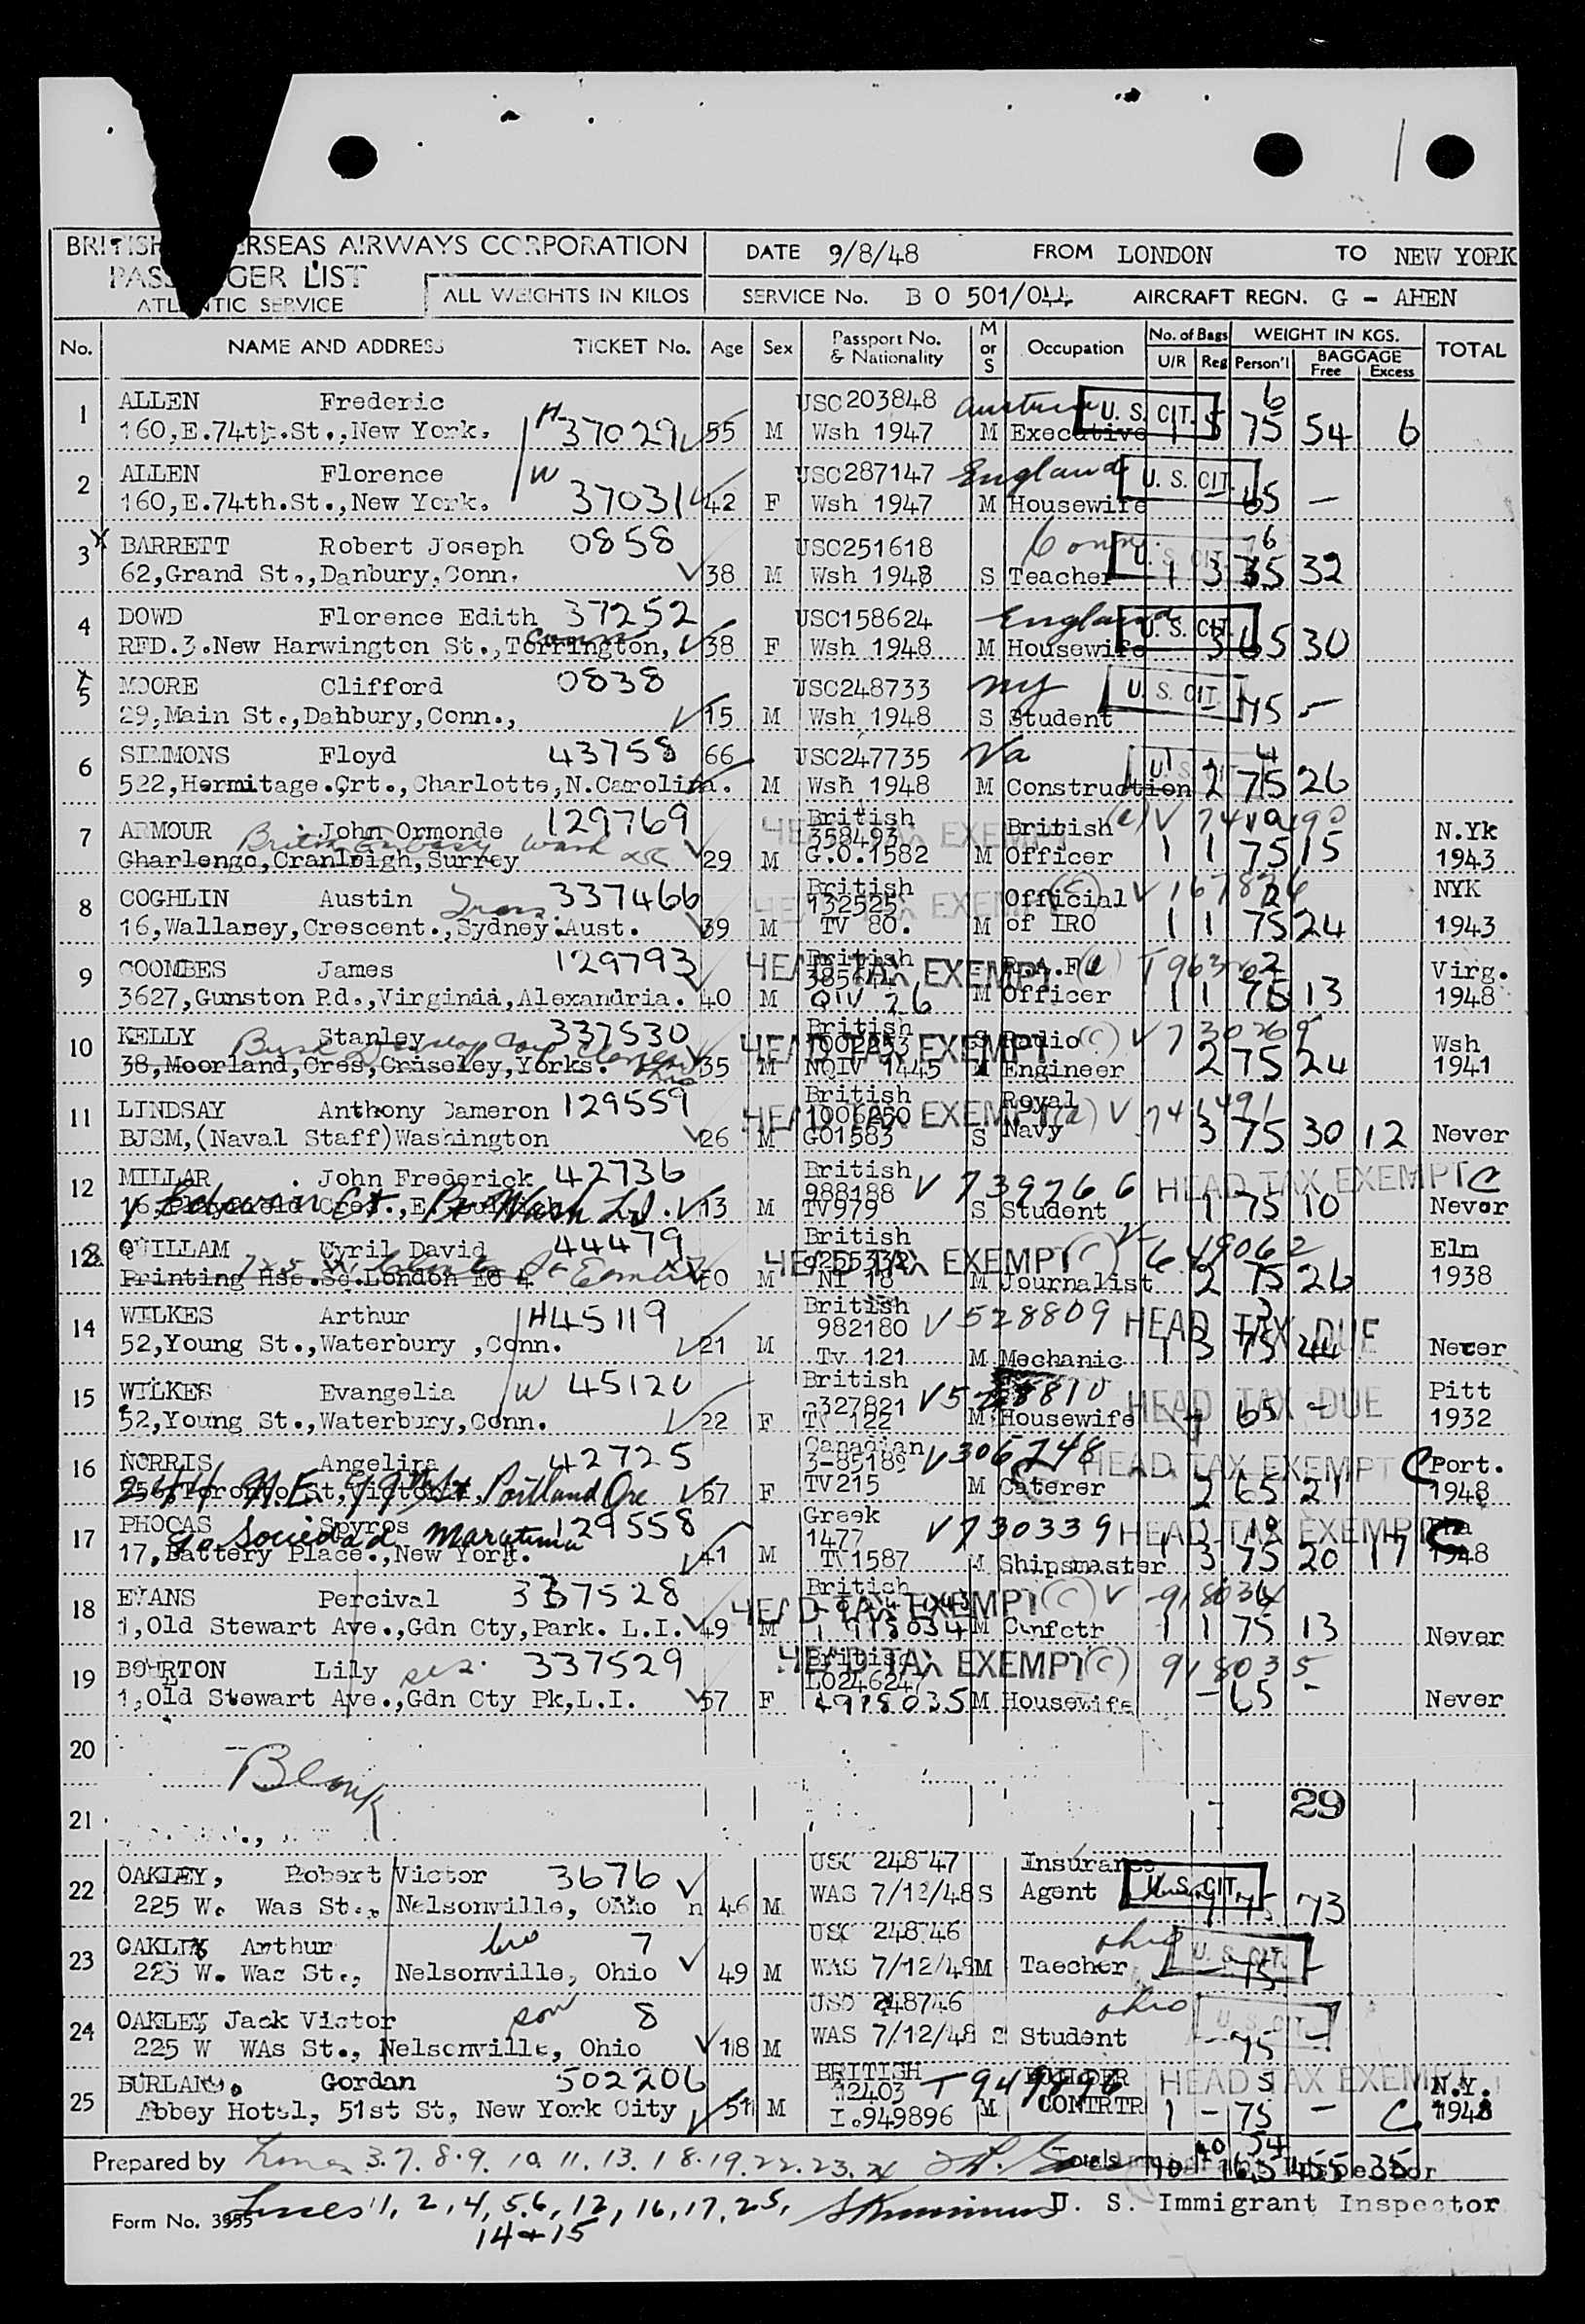 BRITISH OVERSEAS AIRWAYS CORPORATION
PASSENGER LIST
ATLANTIC SERVICE
ALL WEIGHTS IN KILOS
DATE 9/8/48 FROM LONDON TO NEW YORK
SERVICE No. B O 501/044 AIRCRAFT REGN. G - AHEN
No. NAME AND ADDRESS TICKET No. Age Sex Passport No. & Nationality M or S Occupation No. of Bags U/R Reg WEIGHT IN KGS. Person'l BAGGAGE Free Excess TOTAL
1 ALLEN Frederic H USC203848 U. S. CIT. 6
160,E.74th.St.,New York. 37029 55 M Wsh 1947 M Executive 1 5 75 54 6
2 ALLEN Florence W USC287147 England U. S. CIT.
160,E.74th.St.,New York. 37031 42 F Wsh 1947 M Housewife 65 -
3 BARRETT Robert Joseph 0858 USC251618 Conn. U. S. CIT. 6
62,Grand St.,Danbury,Conn. 38 M Wsh 1948 S Teacher 1 3 32
4 DOWD Florence Edith 37252 USC158624 England U. S. CIT.
RFD.3.New Harwington St.,Torrington, Conn 38 F Wsh 1948 M Housewife 3 65 30
5 MOORE Clifford 0838 USC248733 NY U. S. CIT.
29,Main St.,Dahbury,Conn., 15 M Wsh 1948 S Student 75 -
6 SIMMONS Floyd 43758 66 USC247735 Va U. S. CIT. 4
522,Hermitage.Crt.,Charlotte,N.Carolina. M Wsh 1948 M Construction 2 75 26
7 ARMOUR John Ormonde 129769 British 358493 HEAD TAX EXEMPT British N.Yk
Charlengo,Cranleigh,Surrey 29 M G.O.1582 M Officer 1 1 75 15 1943
8 COGHLIN Austin Trans. 337466 British 132525 HEAD TAX EXEMPT Official NYK
16,Wallasey,Crescent.,Sydney.Aust. 39 M TV 80. M of IRO 1 1 75 24 1943
9 COOMBES James 129793 British HEAD TAX EXEMPT Virg.
3627,Gunston Rd.,Virginia,Alexandria. 40 M 26 M Officer 1 1 75 13 1948
10 KELLY Stanley 337530 British HEAD TAX EXEMPT Radio Wsh
38,Moorland,Cres,Guiseley,Yorks. 35 M NQIV 1445 Engineer 2 75 24 1941
11 LINDSAY Anthony Cameron 129559 British HEAD TAX EXEMPT Royal
BJSM,(Naval Staff)Washington 26 M GO1583 S Navy 3 75 30 12 Never
12 MILLAR John Frederick 42736 British 988188 V 739266 HEAD TAX EXEMPT C
13 M TV979 S Student 1 75 10 Never
13 QUILLAM Cyril David 44479 British HEAD TAX EXEMPT (C) V 649062 Elm
Printing Hse.Sq.London EC 4 M NI 18 M Journalist 2 75 26 1938
14 WILKES Arthur H45119 British 982180 V 528809 HEAD TAX DUE 3
52,Young St.,Waterbury ,Conn. 21 M Tv 121 M Mechanic 1 3 75 44 Never
15 WILKES Evangelia W 45120 British HEAD TAX DUE Pitt
52,Young St.,Waterbury,Conn. 22 F TV 122 M Housewife 65 - 1932
16 NORRIS Angelina 42725 Canadian 3-85189 V306248 HEAD TAX EXEMPT C Port.
Portland Ore 57 F TV215 M Caterer 2 65 21 1948
17 PHOCAS Spyros 129558 Greek 1477 V730339 HEAD TAX EXEMPT C
17,Battery Place.,New York. 41 M TV1587 M Shipsmaster 1 3 75 20 17 1948
18 EVANS Percival 337528 British HEAD TAX EXEMPT (C) V 918034
1,Old Stewart Ave.,Gdn Cty,Park. L.I. 49 M 918034 M Cnfctr 1 1 75 13 Never
19 BOURTON Lily sis. 337529 British HEAD TAX EXEMPT (C) 918035
1,Old Stewart Ave.,Gdn Cty Pk,L.I. 57 F 918035 M Housewife - 65 - Never
20 Blank
21 29
22 OAKLEY, Robert Victor 3676 USC 248 47 Insurance
225 W. Was St., Nelsonville, Ohio 46 M WAS 7/12/48 S Agent U. S. CIT. 75 73
23 OAKLEY Arthur bro 7 USC 248 46 Ohio U. S. CIT.
225 W. Was St., Nelsonville, Ohio 49 M WAS 7/12/48 M Taecher 75 -
24 OAKLEY, Jack Victor son 8 248746 Ohio U. S. CIT.
225 W WAs St., Nelsonville, Ohio 18 M WAS 7/12/48 S Student - 75 -
25 BURLAND. Gordan 502206 BRITISH T949896 BUILDER HEAD TAX EXEMPT N.Y.
Abbey Hotel, 51st St, New York City 51 M I.949896 M CONTRTR 1 - 75 - C 1948
Prepared by Lines 3.7.8.9.10.11.13.18.19.22.23.24 Totals
Form No. 3955 Lines 1, 2, 4, 5, 6, 12, 16, 17, 25, U. S. Immigrant Inspector
14 + 15